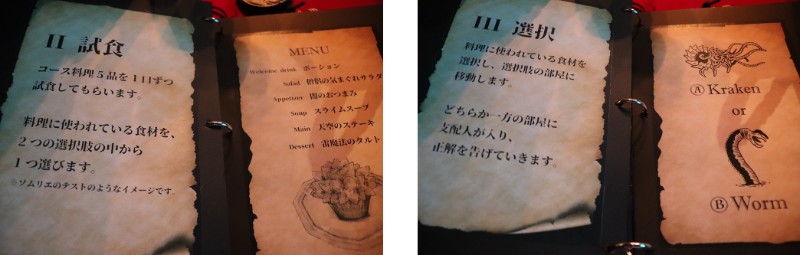 II 試食
コース料理5品を1口ずつ
試食してもらいます。
料理に使われている食材を、
2つの選択肢の中から
1つ選びます。
※ソムリエのテストのようなイメージです。
MENU
Welcome drink ポーション
Salad 僧侶の気まぐれサラダ
Appetizer 闇のおつまみ
Soup スライムスープ
Main 天空のステーキ
Dessert 雷魔法のタルト
III 選択
料理に使われている食材を
選択し、選択肢の部屋に
移動します。
どちらか一方の部屋に
支配人が入り、
正解を告げていきます。
Ⓐ Kraken
or
Ⓑ Worm